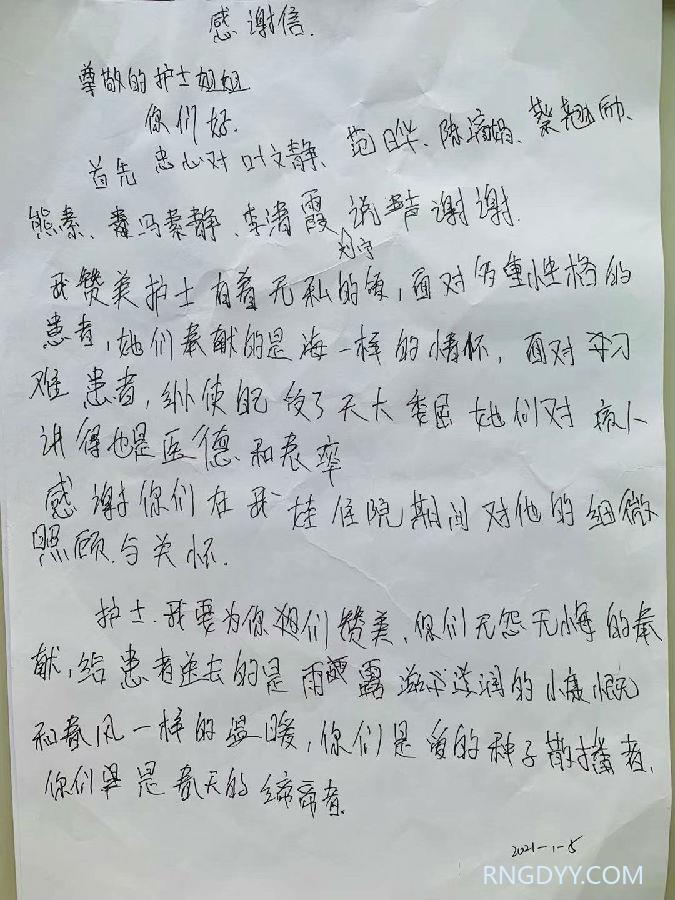 感谢信.
尊敬的护士姐姐
你们好.
首先忠心对叶文静、范晔、陈 、蔡 励、
熊秦、 冯秦静、李涛霞 说声谢谢.
刘宁
我赞美护士有着无私的爱,面对多重性格的
患者,她们奉献的是海一样的情怀,面对刁
难患者,纵使 受了天大委屈她们对病人
讲得也是医德、和表率
感谢你们在我 住院期间对他的细微
照顾.与关怀.
护士.我要为你姐们赞美、你们无怨无悔的奉
献,给患者送去的是雨 露滋 滋润的慷慨
和春风一样的温暖,你们是爱的种子散播者.
你们更是春天的缔 者.
2021-1-5
RNGDYY.COM